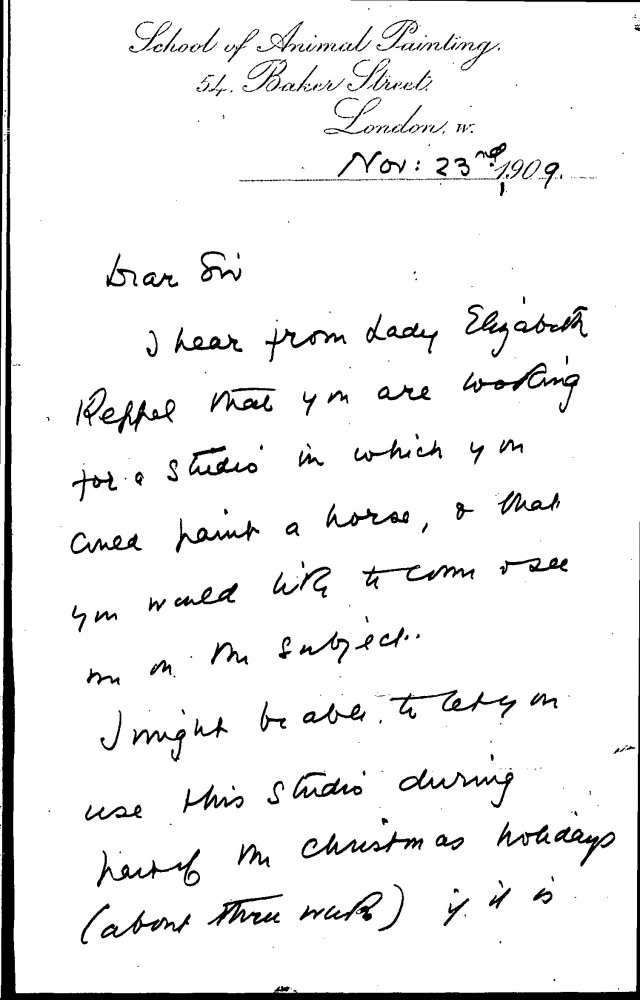 School of Animal Painting.
54. Baker Street.
London. W.
Nov: 23rd 1909.
Dear Sir
I hear from Lady Elizabeth
Keppel that you are looking
for a studio in which you
could paint a horse, & that
you would like to come & see
me on the subject.
I might be able to let you
use this studio during
part of the Christmas holidays
(about three weeks) if it is